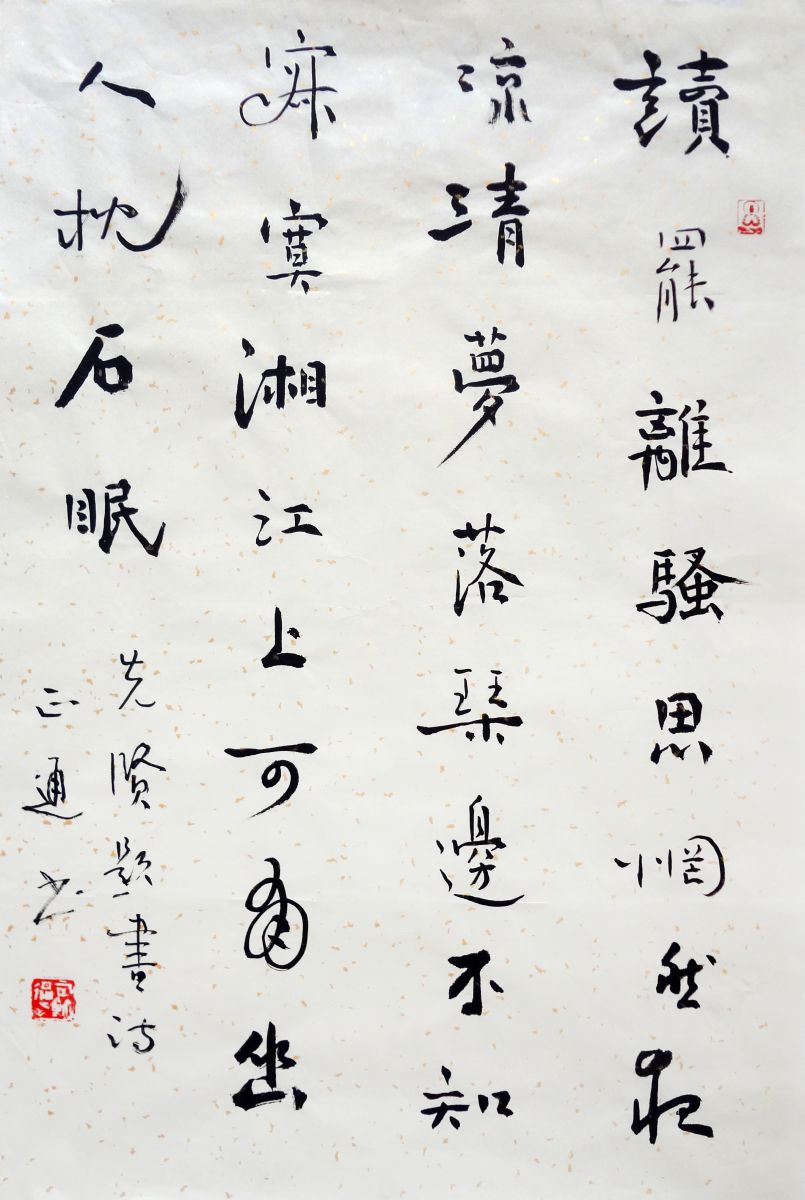 讀罷離騷思惘然夜
涼清夢落琹邊不知
寂寞湘江上可有幽
人枕石眠
先賢題書詩
正通书